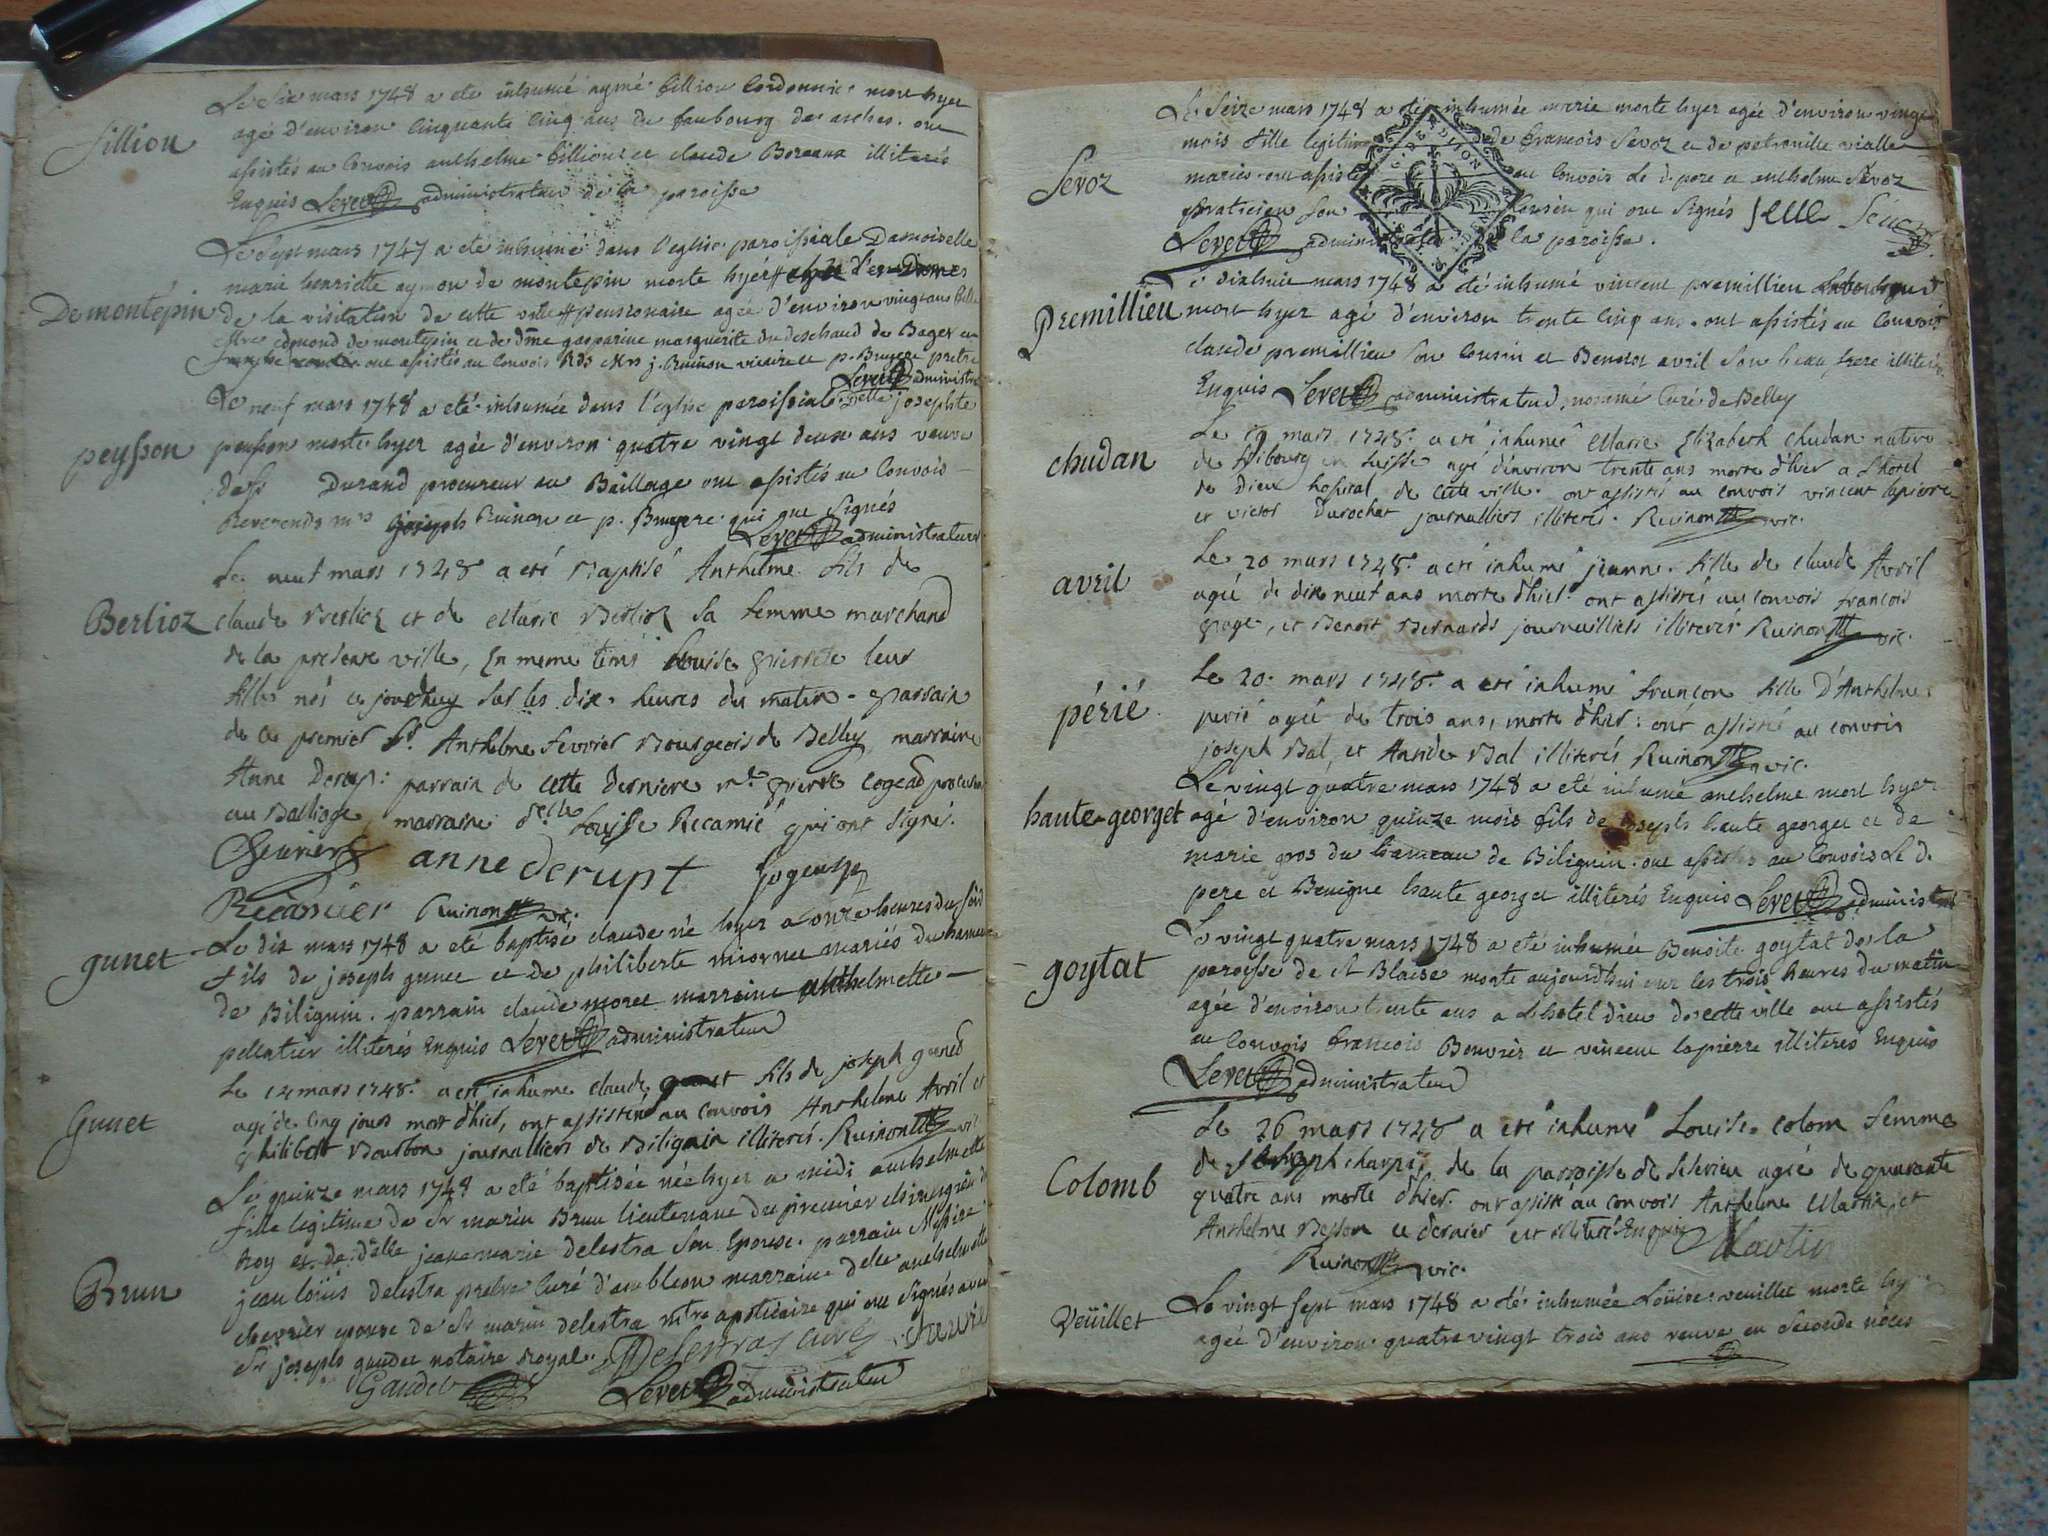 fillion
Le Six mars 1748 a eté inhumé aymé fillion Cordonnier mort hyer
agé d'environ Cinquante Cinq ans du faubourg des arches. ont
assistés au Convois anthelme fillion et claude illiterés
Enquis Levet administrateur de la paroisse
De montépin
Le Sept mars 1747 a eté inhumé dans l'eglise paroissiale Damoiselle
marie henriette aymon de montepin morte hyer
de la visitation de cette ville pensionaire agée d'environ vingt ans fille
edmond de montepin et de dme gasparine marguerite du deschaud de Bagex
ont assistés au Convois Rds Mrs j. Ruinon vicaire et p. Bruyere pretre
Levet administ
peysson
Le neuf mars 1748 a eté inhumée dans l'eglise paroissiale Delle josephte
peysson morte hyer agée d'environ quatre vingt deux ans veuve
Durand procureur au Bailliage ont assistés au Convois
Reverends mrs joseph Ruinon et p. Bruyere qui ont Signés
Levet administrateur
Berlioz
Le neuf mars 1748 a eté Baptisé Anthelme fils de
claude Berlioz et de Marie Berlioz Sa femme marchand
de la presente ville, En meme tems Louise pierrete leur
fille nés ce jourdhuy sur les dix heures du matin parrain
de ce premier Sr Anthelme fevrier Bourgeois de Belley, marraine
Anne Derupt: parrain de cette derniere mre pierre Cogead procureur
au Balliage, marraine delle Louise Recamié qui ont signé.
anne derupt
Récamier Ruinon vic.
gunet
Le dix mars 1748 a eté baptisé claude né hyer a onze heures du soid
fils de joseph gunet et de philiberte miornet mariés du hameau
de Bilignin. parrain claude moret marraine anthelmette
pelletier illiterés Enquis Levet administrateur
Gunet
Le 14 mars 1748. a eté inhumé claude gunet fils de joseph guned
agé de Cinq jours mort d'hier, ont assisté au convois Anthelme Avril et
philibert Bourbon journalliers de Bilignin illiterés. Ruinon vic
Brun
Le quinze mars 1748 a eté baptisée née hyer a midi anthelmette
fille legitime de Sr marin Brun lieutenant du premier chirurgien du
Roy et de delle jeanemarie delestra Son Epouse. parrain Messire
jean loüis delestra pretre Curé d'ambleon marraine delle anthelmette
chevrier epouse de Sr marin delestra mtre apoticaire qui ont Signés avec
Sr joseph gaudet notaire Royal. Delestraz curé chevrier
Gaudet Levet administrateur
Sevoz
Le Seize mars 1748 a eté inhumée marie morte hyer agée d'environ vingt
mois fille legitime de francois Sevoz et de petronille vialle
mariés ont assistés au Convois Le d. pere et anthelme Sevoz
praticien Son Cousin qui ont Signés
Levet administrateur de la paroisse.
Premillieu
Le dixhuit mars 1748 a eté inhumé vincent premillieu
mort hyer agé d'environ trente Cinq ans. ont assistés au Convois
claude premillieu Son Cousin et Benoit avril Son beau frere illiterés
Enquis Levet administrateud, nommé Curé de Belley
chudan
Le 19 mars 1748. a eté inhumée Marie Elizabeth chudan native
de fribourg en suisse agé d'environ trente ans morte d'hier a L'hotel
de Dieu hopital de cette ville. ont assisté au convois vincent lapierre
et victor Durochat journalliers illiterés. Ruinon vic.
avril
Le 20 mars 1748. a eté inhumé jeanne fille de claude Avril
agée de dix neuf ans morte d'hier. ont assistés au convois françois
page, et Benoit Bernards journalliers illiterés Ruinon vic.
périé
Le 20. mars 1748. a eté inhumé françon fille D'Anthelme
perié agée de trois ans, morte d'hier: ont assisté au convoin
joseph Bal, et Bal illiterés Ruinon vic.
haute-georget
Le vingt quatre mars 1748 a eté inhumé anthelme mort hyer
agé d'environ quinze mois fils de joseph haute georget et de
marie gros du hameau de Bilignin. ont assistés au Convois Le d.
pere et Benigne haute georget illiterés Enquis Levet administ
goytat
Le vingt quatre mars 1748 a eté inhumée Benoite goytat de la
paroisse de St Blaise morte aujourdhui sur les trois heures du matin
agée d'environ trente ans a Lhotel dieu de cette ville ont assistés
au Convois francois Bouvier et vincent lapierre illiteres Enquis
Levet administrateud
Colomb
Le 26 mars 1748 a eté inhumé Louise colom femme
de joseph de la parroisse de agée de quarante
quatre ans morte d'hier. ont assisté au convois Anthelme Martin, et
Anthelme Besson ce dernier est illiteré Enquis Martin
Ruinon vic.
Veüillet
Le vingt sept mars 1748 a eté inhumée Loüise veuillet morte hyer
agée d'environ quatre vingt trois ans veuve en Seconde nôces